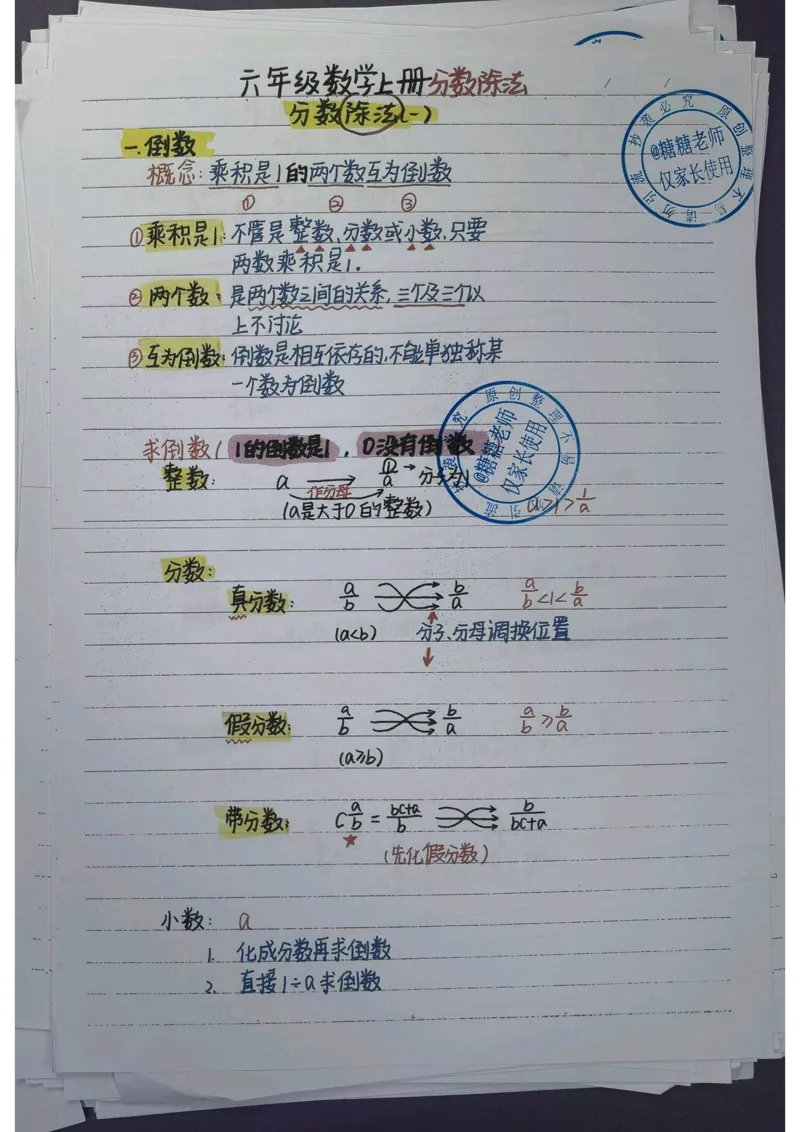 六年级数学上册分数除法
分数除法(一)
一.倒数
概念:乘积是1的两个数互为倒数
① ② ③
①乘积是1:不管是整数,分数或小数,只要
两数乘积是1.
②两个数:是两个数之间的关系,三个及三个以
上不讨论
③互为倒数:倒数是相互依存的,不能单独称某
一个数为倒数
求倒数( 1的倒数是1,0没有倒数
整数: a → 1/a → 分子为1
作分母
(a是大于0的整数) a≥1≥1/a
分数:
真分数: a/b b/a a/b<1<b/a
(a<b) 分子、分母调换位置
假分数: a/b b/a a/b≥b/a
(a≥b)
带分数: c a/b = bc+a/b b/bc+a
(先化假分数)
小数: a
1. 化成分数再求倒数
2. 直接1÷a求倒数
抄袭必究 原创整理不易 请勿引流
@糖糖老师
仅家长使用
抄袭必究 原创整理不易 请勿引流
@糖糖老师
仅家长使用